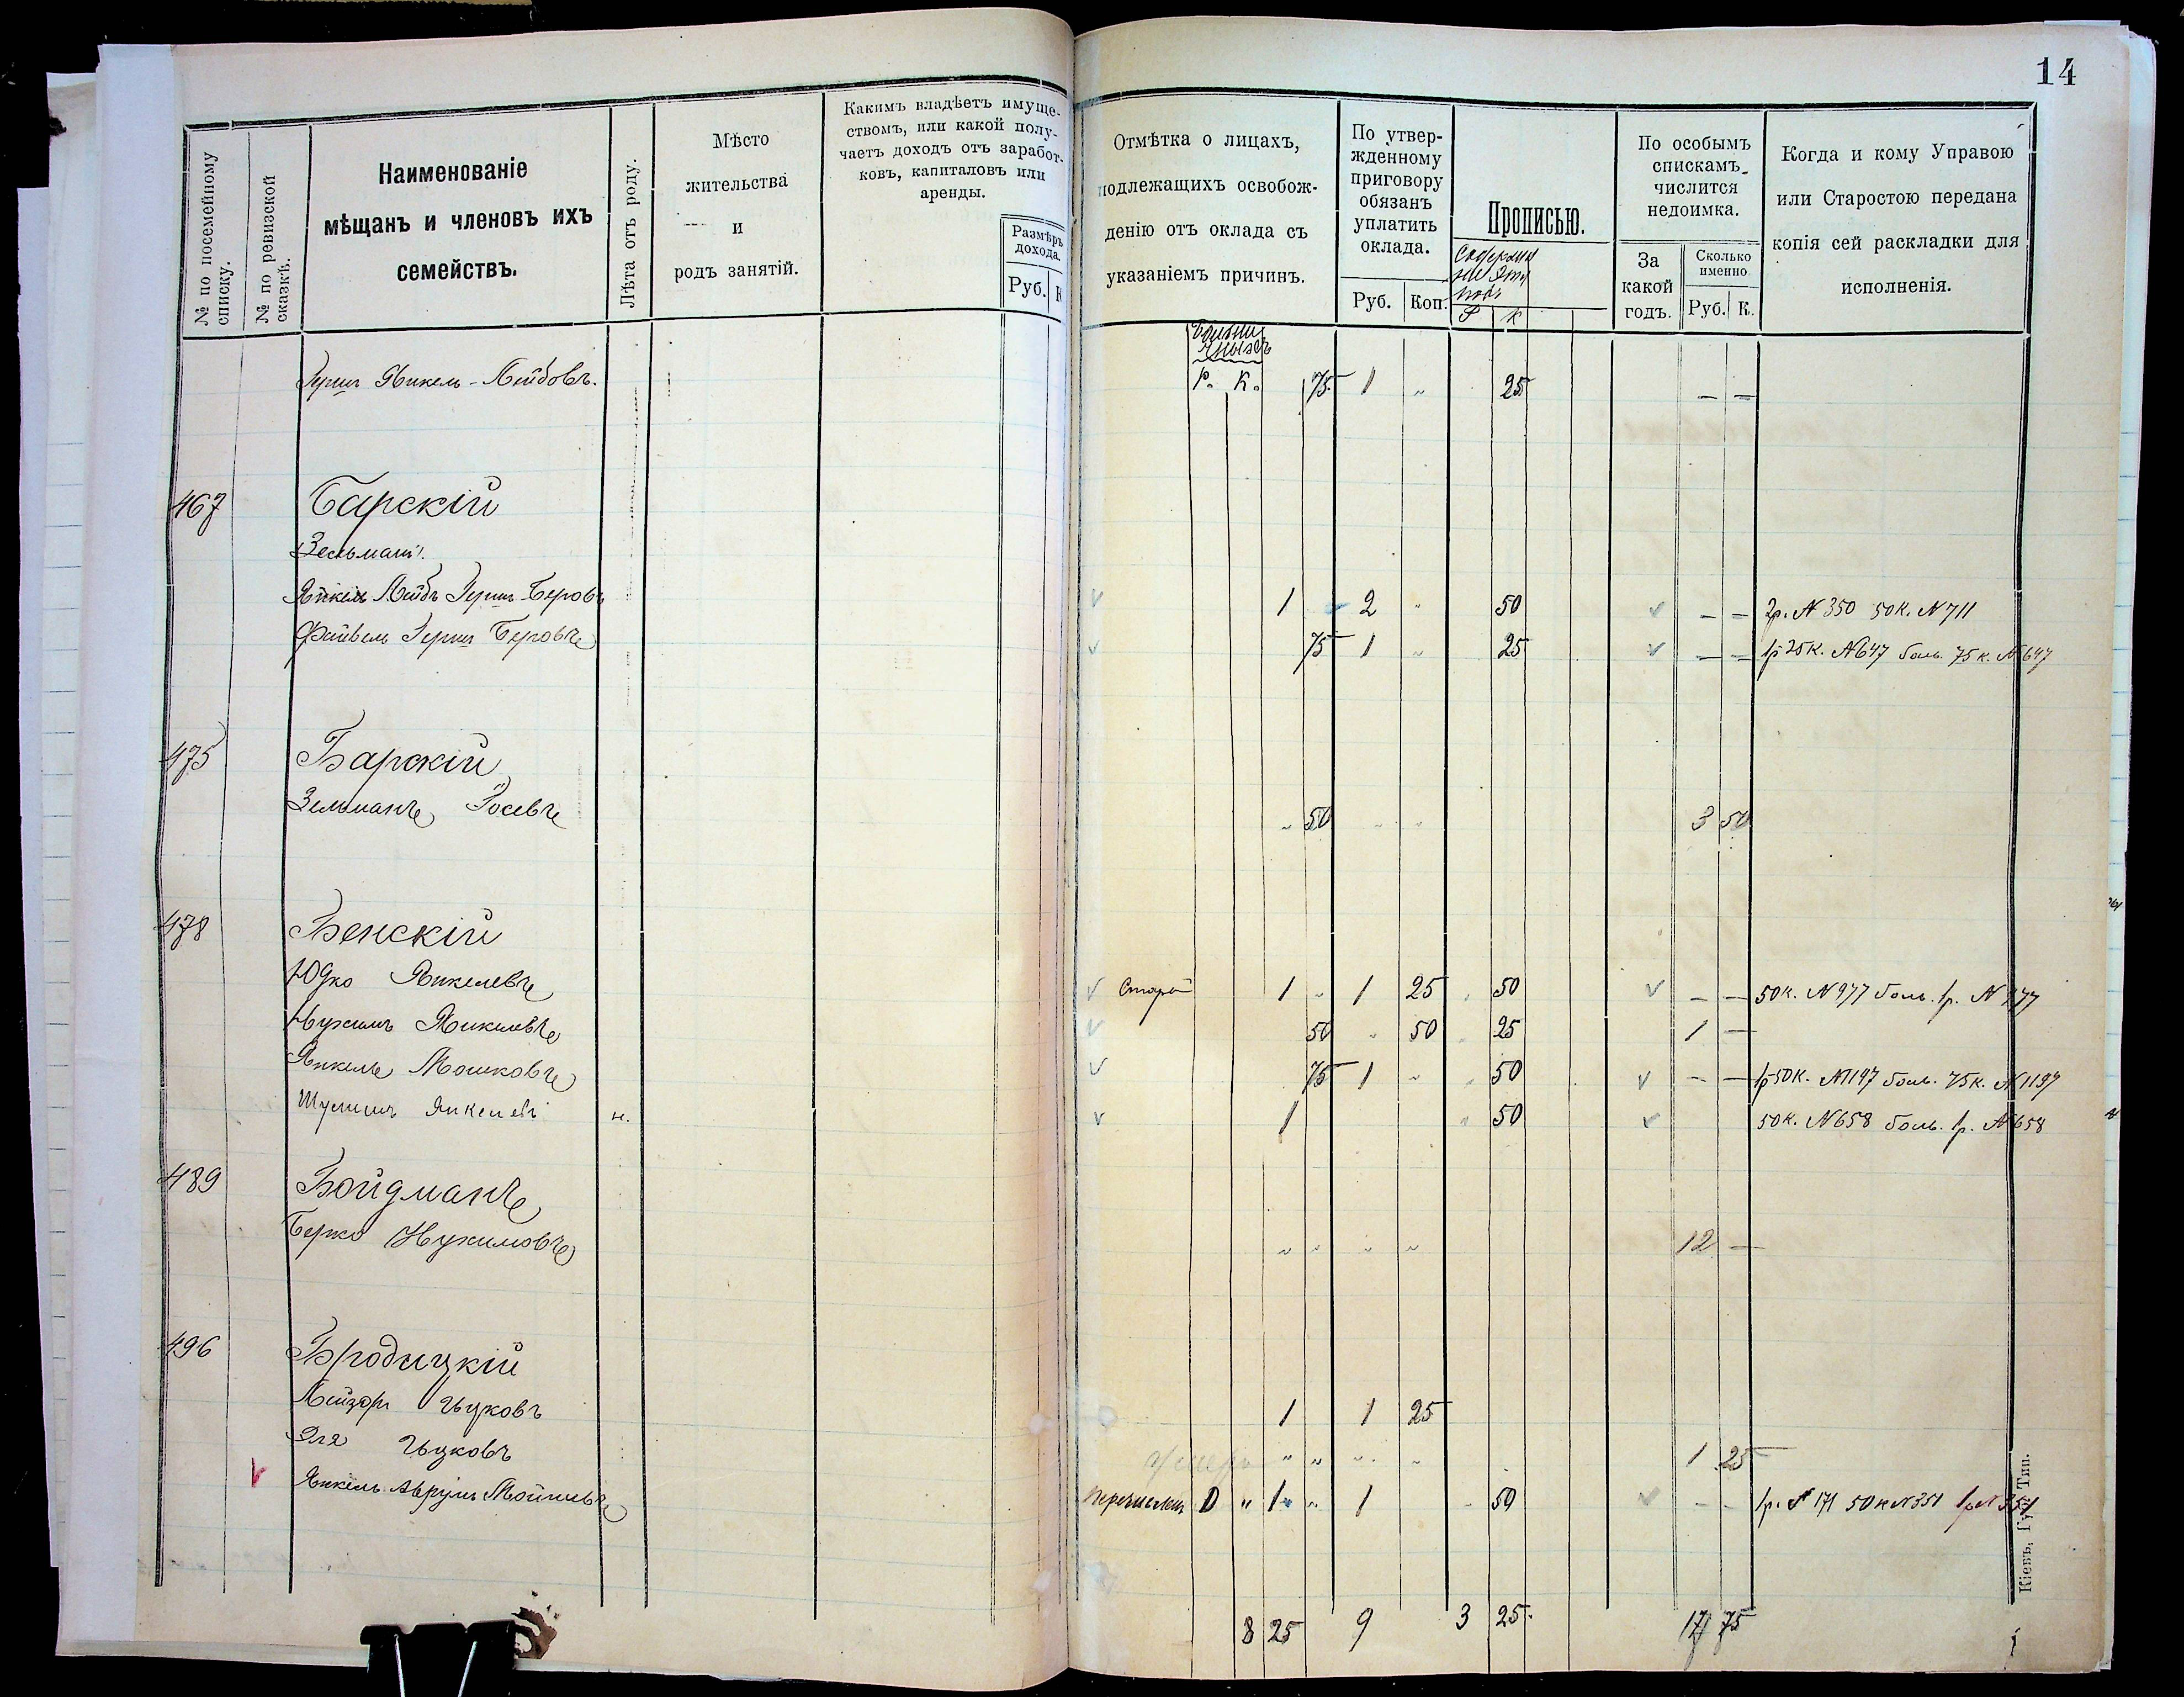 14
№ по посемейному списку.
№ по ревизской сказкѣ.
Наименованіе
мѣщанъ и членовъ ихъ
семействъ.
Лѣта отъ роду.
Мѣсто
жительства
и
родъ занятій.
Какимъ владѣетъ имуще-
ствомъ, или какой полу-
чаетъ доходъ отъ заработ-
ковъ, капиталовъ или
аренды.
Размѣръ
дохода.
Руб. К
Отмѣтка о лицахъ,
подлежащихъ освобож-
денію отъ оклада съ
указаніемъ причинъ.
По утвер-
жденному
приговору
обязанъ
уплатить
оклада.
Руб. Коп.
Прописью.
Р К
По особымъ
спискамъ
числится
недоимка.
За
какой
годъ.
Сколько
именно
Руб. К.
Когда и кому Управою
или Старостою передана
копія сей раскладки для
исполненія.
Р. К.
Герш Янкель-Лейбовъ. 75 1 „ 25 — —
467 Барскій
Зельманъ.
Янкель Лейбъ Герш Беровъ 1 2 „ 50 — — 2р. № 350 50к. № 711
Файвель Герш Беровъ 75 1 „ 25 — — 1р 25к. № 647 боль. 75 к. № 647
475 Барскій
Зельманъ Іосевъ „ 50 „ „ 3 50
478 Бенскій
Юдко Янкелевъ Старъ 1 „ 1 25 „ 50 — — 50к. № 977 боль. 1р. № 977
Нухимъ Янкелевъ 50 „ 50 „ 25 1 —
Янкель Мошковъ 75 1 „ „ 50 — — 1р 50к. № 1197 боль. 75к. № 1197
Шулимъ Янкелевъ н. 1 „ 50 50к. № 658 боль. 1р. № 658
489 Бойдманъ
Берко Нухимовъ „ „ „ „ 12 —
496 Бродицкій
Лейзеръ Ицковъ 1 1 25
Эля Ицковъ умеръ „ „ „ „ 1 25
V Янкель Аврумъ Мойшевъ перечислен „ 1 „ 1 50 — — 1р. № 171 50к № 351 1р № 351
8 25 9 3 25. 17 75
Кіевъ, Губ. Тип.